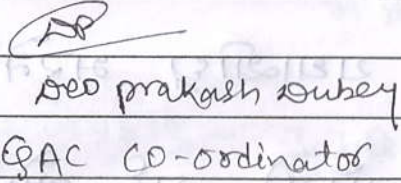 DP
Deo prakash Dubey
GAC CO-ordinator